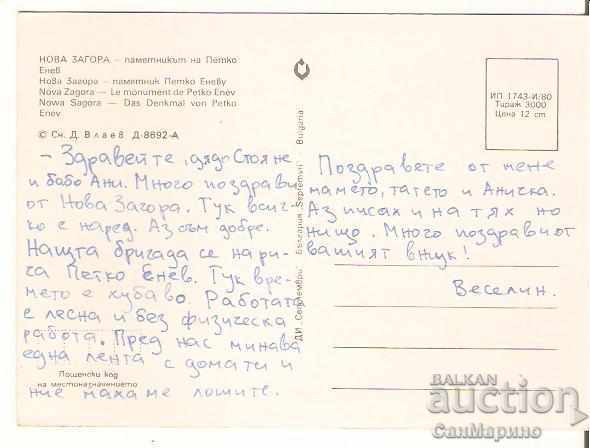 НОВА ЗАГОРА – паметникът на Петко
Енев
Нова Загора – памятник Петко Еневу
Nova Zagora — Le monument de Petko Enev
Nowa Sagora — Das Denkmal von Petko
Enev
© Сн. Д. Влаев Д-8692-А
– Здравейте, дядо Стояне
и бабо Ани. Много поздрави
от Нова Загора. Тук всич-
ко е наред. Аз съм добре.
Нашта бригада се нари-
ча Петко Енев. Тук вре-
мето е хубаво. Работата
е лесна и без физическа
работа. Пред нас минава
една лента с домати и
ние махаме лошите.
Пощенски код
на местоназначението
ДИ „Септември“ България Septemvri Bulgaria
ИП 1743-И/80
Тираж 3000
Цена 12 ст
Поздравете от мене
мамето, татето и Аничка.
Аз писах и на тях но
нищо. Много поздрави от
вашият внук!
Веселин.
BALKAN
auction
СанМарино